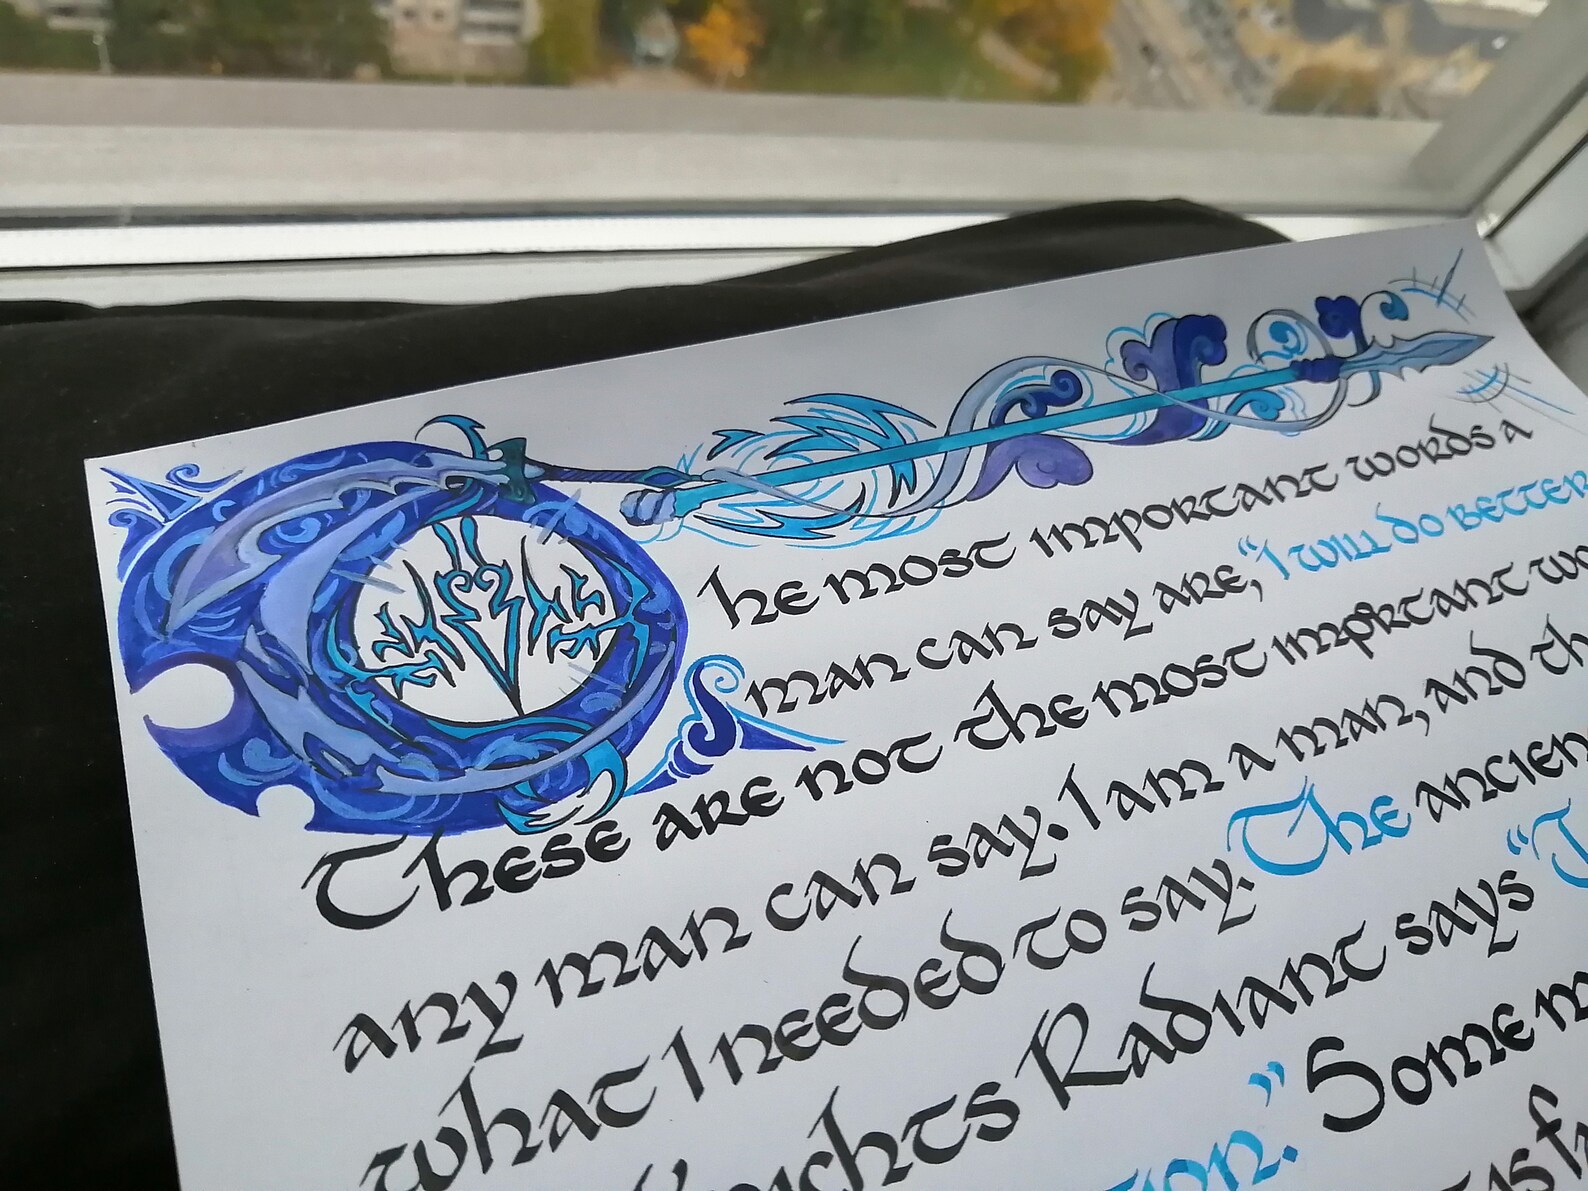 The most important words a
man can say are, “I will do better
These are not the most important
any man can say. I am a man, and
what I needed to say. The ancien
Knights Radiant says “
Some